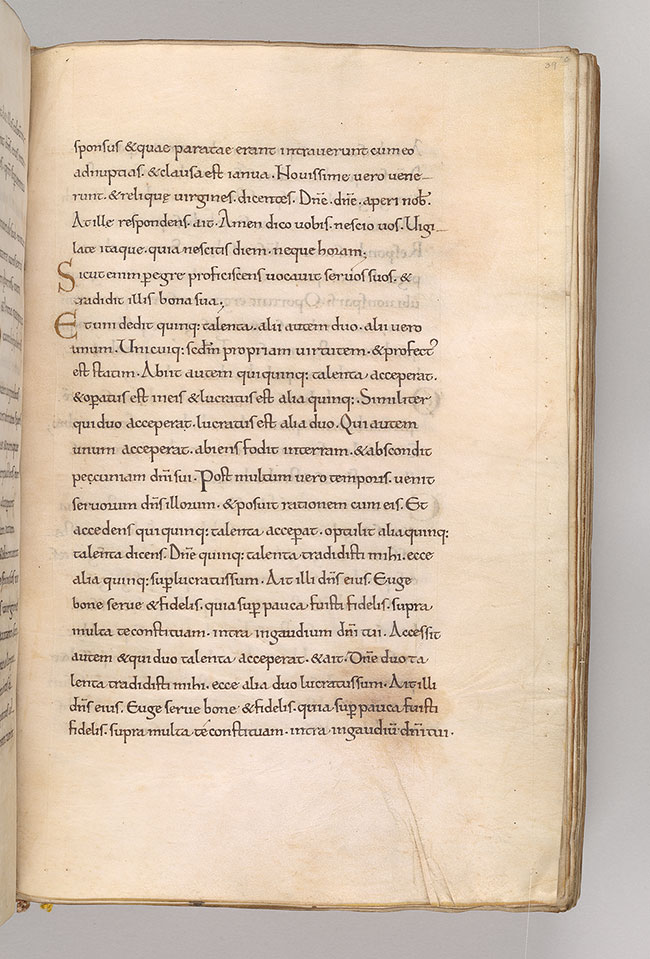 39
sponsus & quae paratae erant intrauerunt cum eo
ad nuptias. & clausa est ianua. Nouissime uero uene
runt. & reliquę uirgines. dicentes. Dn̄e. dn̄e. aperi nob̄.
At ille respondens. ait. Amen dico uobis. nescio uos. Uigi
late itaque. quia nescitis diem. neque horam;
Sicut enim p̲egre proficiscens uocauit seruos suos. &
tradidit illis bona sua;
Et uni dedit quinq: talenta. alii autem duo. alii uero
unum. Unicuiq: scdm̄ propriam uirtutem. & profect᾿
est statim. Abiit autem qui quinq: talenta acceperat.
& op̲atus est in eis & lucratus est alia quinq:. Similiter
qui duo acceperat. lucratus est alia duo. Qui autem
unum acceperat. abiens fodit in terram. & abscondit
peccuniam dn̄i sui. Post multum uero temporis. uenit
seruorum dn̄s illorum. & posuit rationem cum eis. Et
accedens qui quinq: talenta accep̲at. optulit alia quinq:
talenta dicens. Dn̄e quinq: talenta tradidisti mihi. ecce
alia quinq: sup̲lucratus sum. Ait illi dn̄s eius. Euge
bone serue & fidelis. quia sup̲ pauca fuisti fidelis. supra
multa te constituam. intra in gaudium dn̄i tui. Accessit
autem & qui duo talenta acceperat. & ait. Dn̄e duo ta
lenta tradidisti mihi. ecce alia duo lucratus sum. Ait illi
dn̄s eius. Euge serue bone & fidelis. quia sup̲ pauca fuisti
fidelis. supra multa te constituam. intra in gaudiū dn̄i tui.